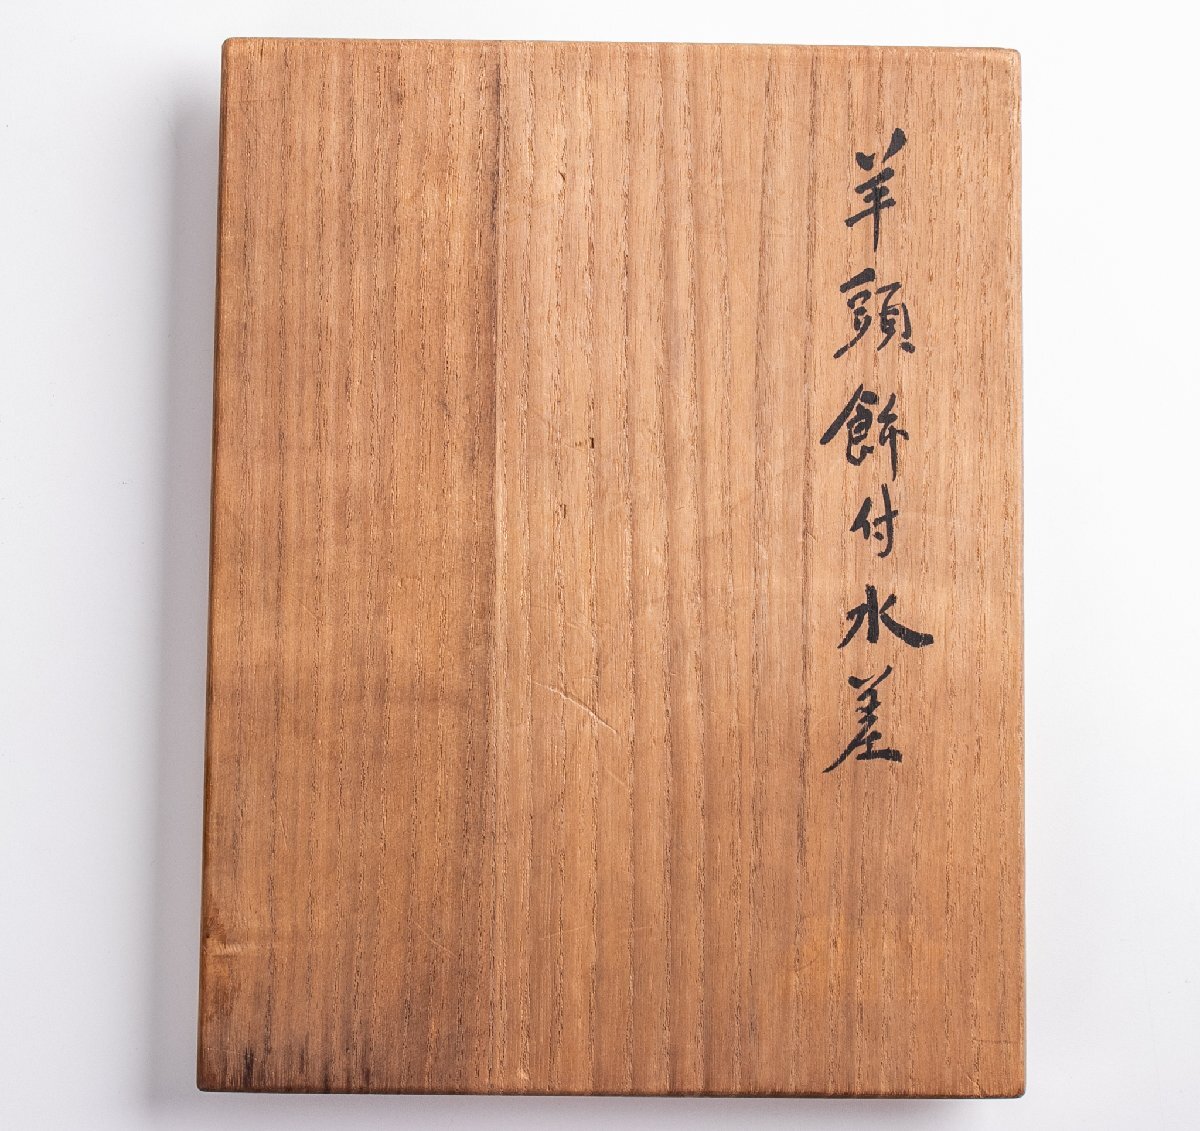 羊頭飾付水差